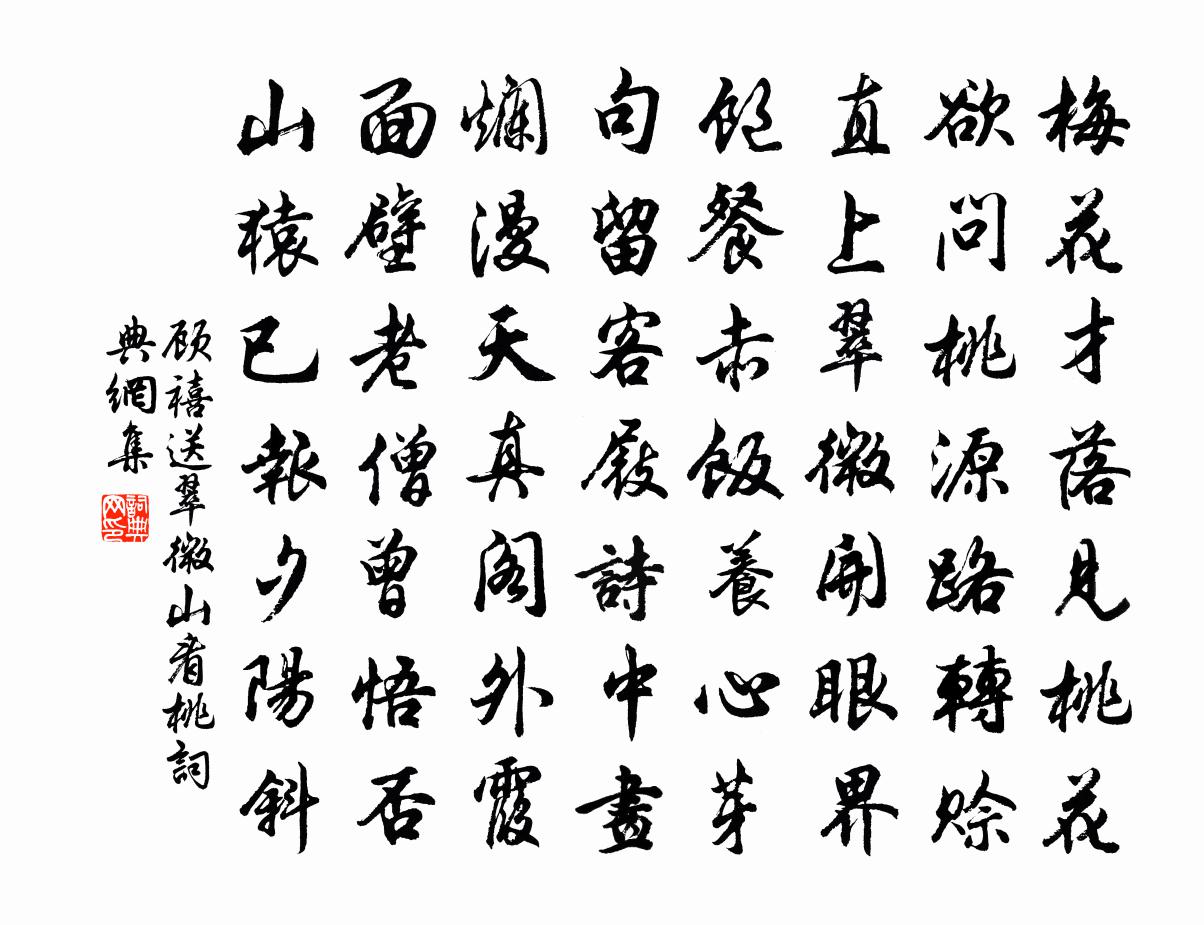 梅花才落見桃花
欲問桃源路轉賒
直上翠微開眼界
飽餐赤飯養心芽
句留客屐詩中畫
爛漫天真閣外霞
面壁老僧曾悟否
山猿已報夕陽斜
顾禧送翠微山看桃詞
典網集
詞典
网印